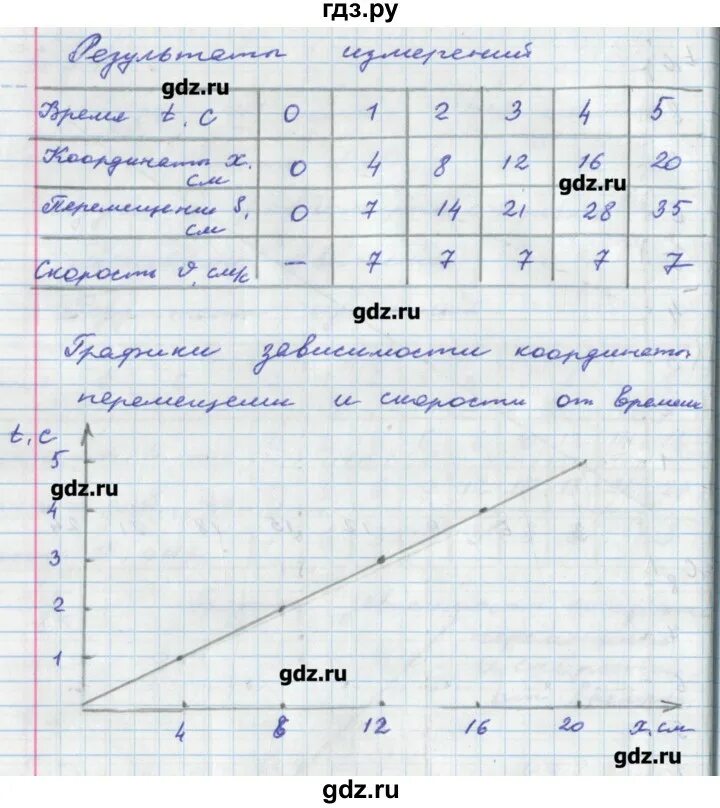 гдз.ру
Результаты измерений
gdz.ru
Время t, с 0 1 2 3 4 5
Координаты x, см 0 4 8 12 16 20
gdz.ru
Перемещение S, см 0 7 14 21 28 35
Скорость υ, см/с — 7 7 7 7 7
gdz.ru
Графики зависимости координаты
перемещения и скорости от времени
t, с
5
gdz.ru
4
3
2
1
gdz.ru
4 8 12 16 20 x, см
gdz.ru
gdz.ru